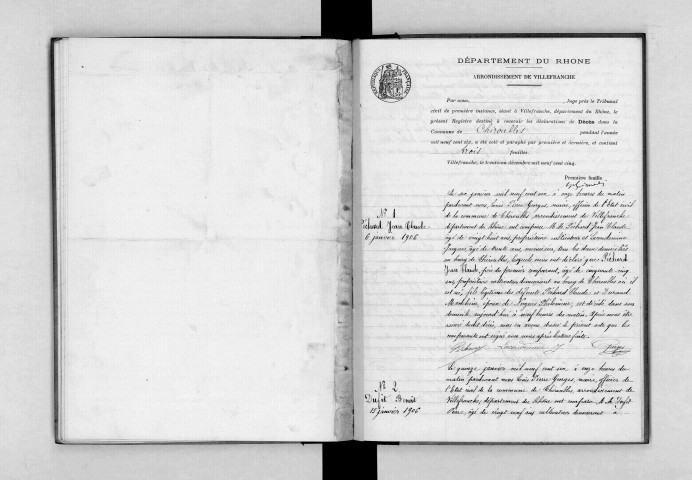 DÉPARTEMENT DU RHONE
ARRONDISSEMENT DE VILLEFRANCHE
Par nous, Juge près le Tribunal
civil de première instance, séant à Villefranche, département du Rhône, le
présent Registre destiné à recevoir les déclarations de Décès dans la
Commune de Chiroubles pendant l'année
mil neuf cent six, a été coté et paraphé par première et dernière, et contient
trois feuilles.
Villefranche, le trente-un décembre mil neuf cent cinq.
Première feuille
N° 1
Péchard Jean Claude
6 janvier 1906
Le six janvier mil neuf cent six, à onze heures du matin
pardevant nous, Louis Pierre Georges, maire, officier de l'état civil
de la commune de Chiroubles arrondissement de Villefranche
département du Rhône est comparu M. M. Péchard Jean Claude
âgé de vingt huit ans, propriétaire cultivateur et
Jacques, âgé de trente ans, tous les deux domiciliés
au bourg de Chiroubles, lesquels nous ont déclaré que Péchard
Jean Claude, père du premier comparant, âgé de cinquante cinq
ans, propriétaire cultivateur demeurant au bourg de Chiroubles où il
est né, fils légitime des défunts Péchard Claude et Durand
époux de Philomène, est décédé dans son
domicile aujourd'hui à neuf heures du matin. Après nous être
assuré du dit décès, nous en avons dressé le présent acte que les
comparants ont signé avec nous après lecture faite.
N° 2
Dufit Benoit
15 janvier 1906
Le quinze janvier mil neuf cent six, à onze heures du
matin pardevant nous Louis Pierre Georges, maire, officier de
l'état civil de la commune de Chiroubles, arrondissement de
Villefranche, département du Rhône ont comparu M. M. Dufit
âgé de vingt neuf ans cultivateur demeurant à